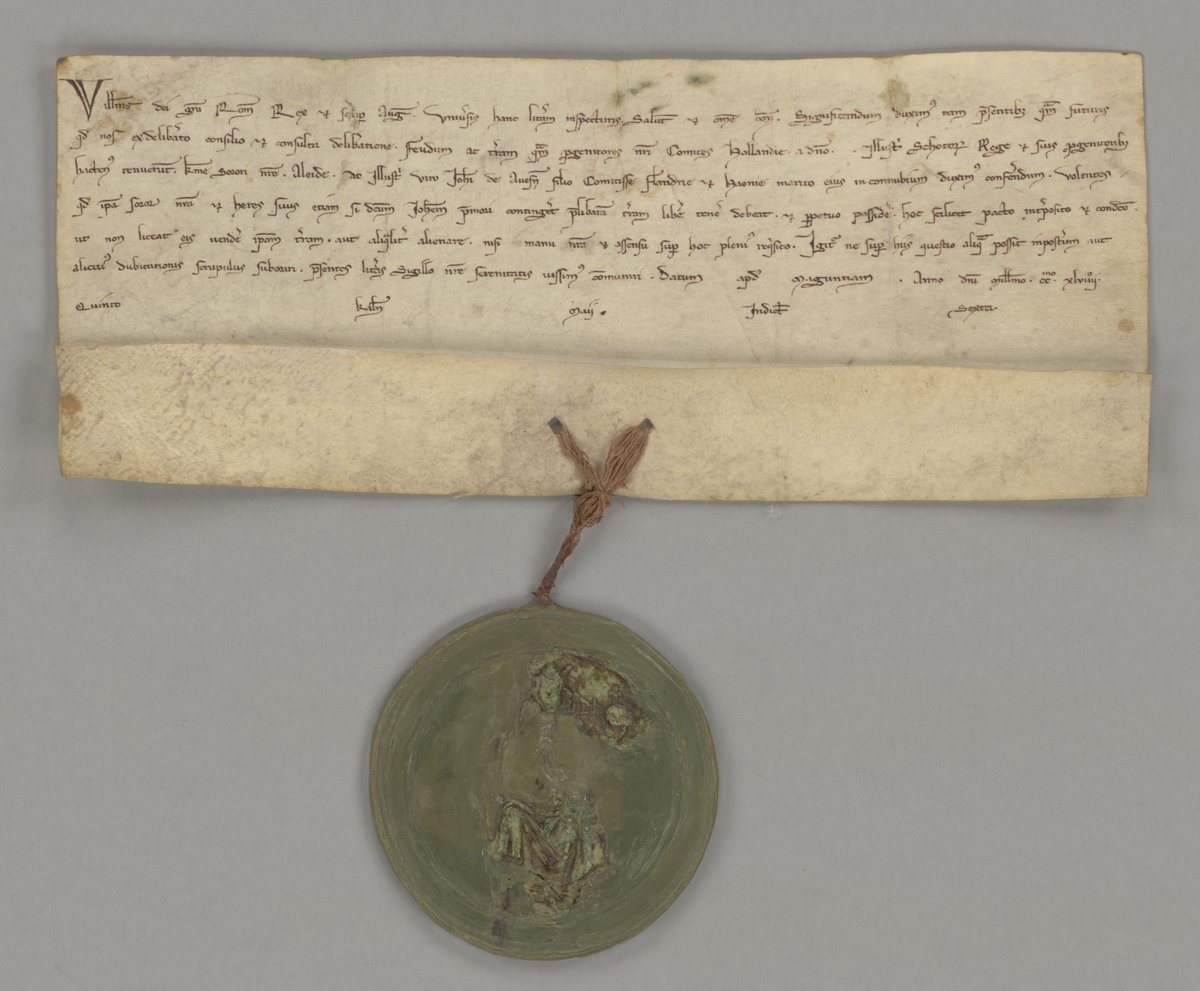 Willms dei gra Rom Rex et semp Aug. Univsis hanc litram inspecturis Salut et ome bon. Significandum duxim9 tam psentibz qm futuris
qd nos ex delibato consilio et consulta delibatione. feudum ac tram qm pgenitores nri Comites Hollandie. a dno. Illustr Schotor Rege et suis pgenitoribz
hacten9 tenuerut. kme Sorori nre. Aleide. Ac Illustr viro Johi de Avesn filio Comitisse flandrie et Haonie marito eius in connubium duxim9 conferendum. volentes
qd ipa soror nra et heres suus etiam si dcum Iohem pmori contingit plibata tram libe tene debeat. et ppetuo posside. hoc scilicet pacto intposito et condco.
ut non liceat eis vende ipam tram. aut aliqlit alienare. nisi manu nra et assensu sup hoc pleni9 reqsito. Igit ne sup hiis questio aliq possit inpostum aut
alicui9 dubitationis scrupulus suborari. psentes litas Sigillo nre serenitatis iussim9 comuniri. Datum apd Maguntiam. Anno dni millmo. cc.mo xlviiio.
Quinto kalm Maij. Indict Sexta.